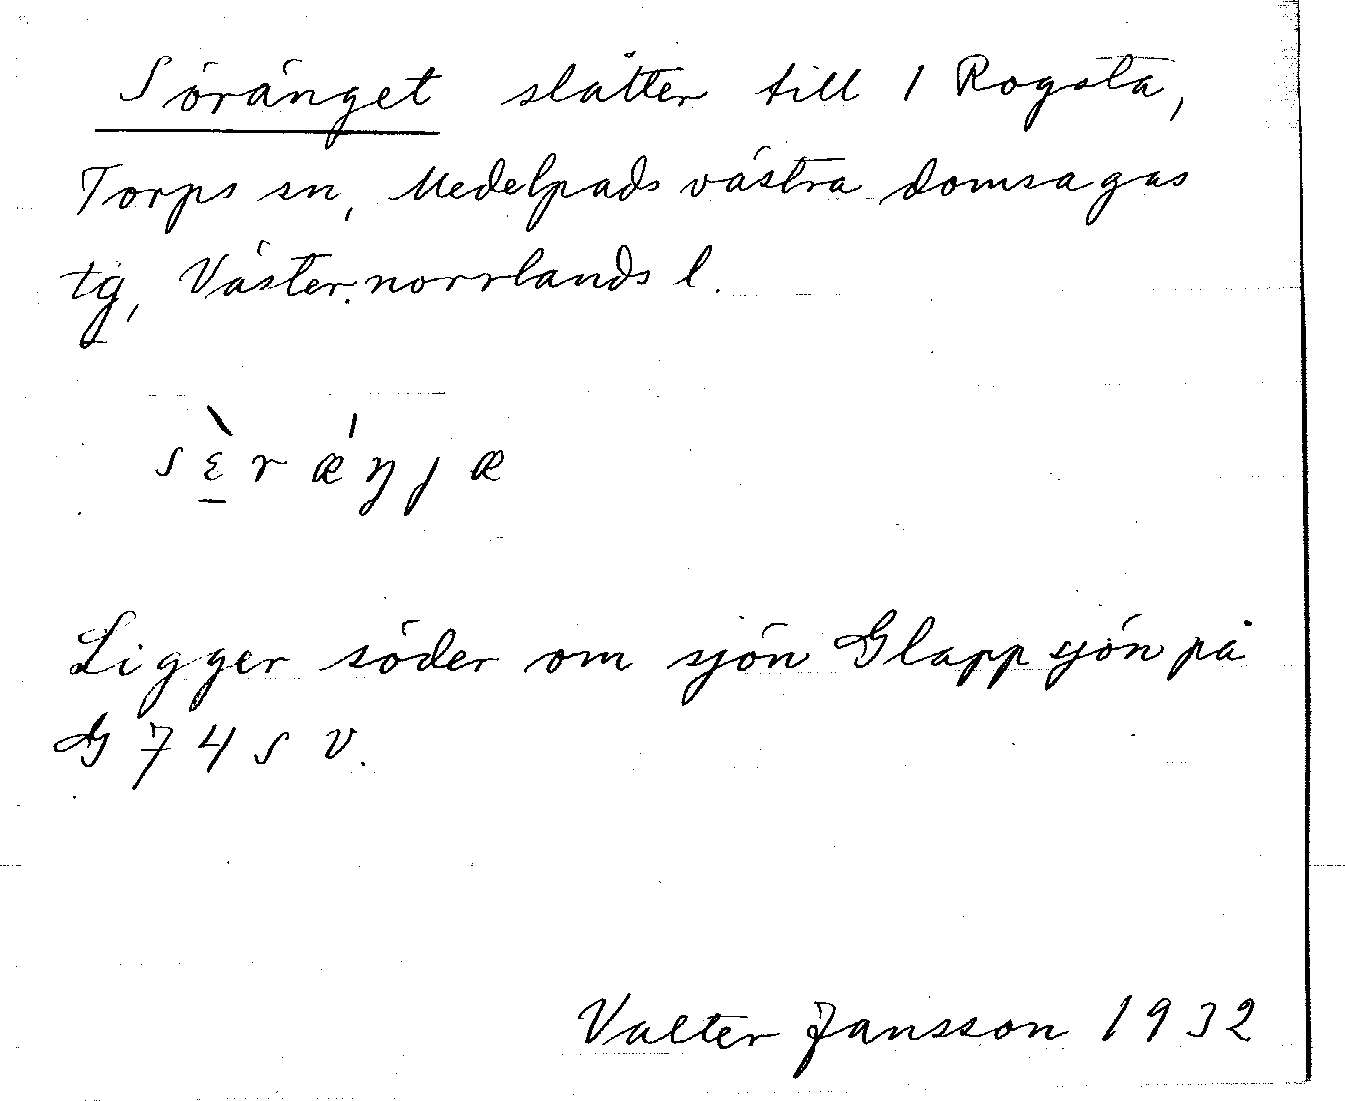 Söränget slåtter till 1 Rogsta,
Torps sn, Medelpads västra domsagas
tg, Västernorrlands l.
sɛ̠̀rǽŋjæ
Ligger söder om sjön Glappsjön på
G 74 s v.
Valter Jansson 1932